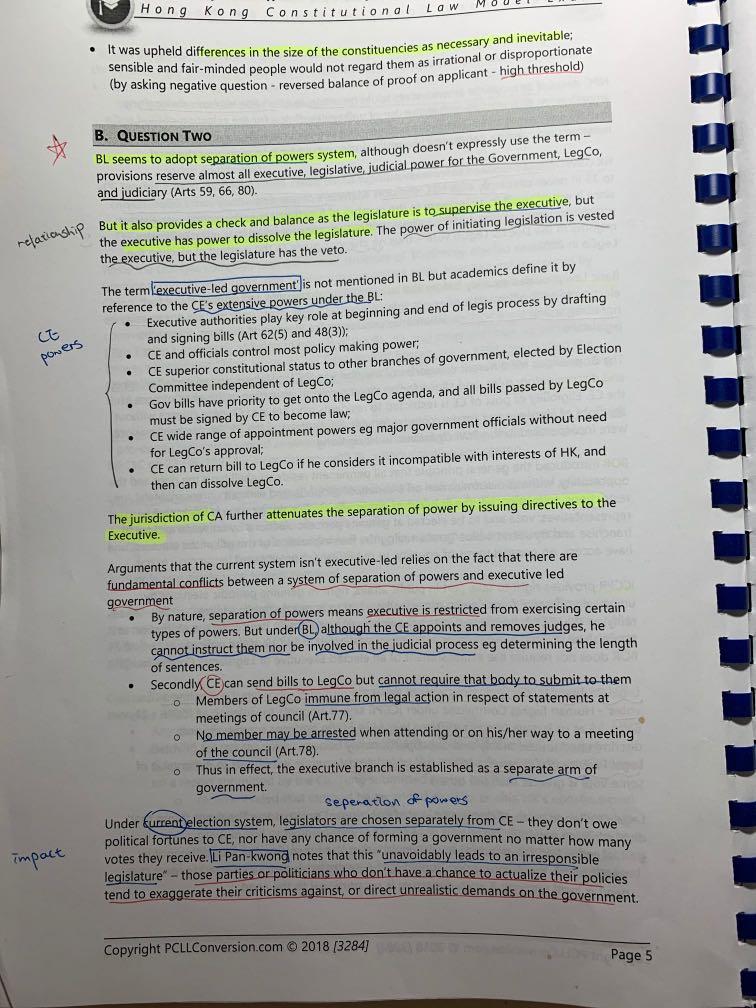 Hong Kong Constitutional Law Model
• It was upheld differences in the size of the constituencies as necessary and inevitable;
sensible and fair-minded people would not regard them as irrational or disproportionate
(by asking negative question - reversed balance of proof on applicant - high threshold)
B. QUESTION TWO
BL seems to adopt separation of powers system, although doesn't expressly use the term –
provisions reserve almost all executive, legislative, judicial power for the Government, LegCo,
and judiciary (Arts 59, 66, 80).
relationship
But it also provides a check and balance as the legislature is to supervise the executive, but
the executive has power to dissolve the legislature. The power of initiating legislation is vested
the executive, but the legislature has the veto.
The term 'executive-led government' is not mentioned in BL but academics define it by
reference to the CE's extensive powers under the BL:
CE
powers
• Executive authorities play key role at beginning and end of legis process by drafting
and signing bills (Art 62(5) and 48(3));
• CE and officials control most policy making power;
• CE superior constitutional status to other branches of government, elected by Election
Committee independent of LegCo;
• Gov bills have priority to get onto the LegCo agenda, and all bills passed by LegCo
must be signed by CE to become law;
• CE wide range of appointment powers eg major government officials without need
for LegCo's approval;
• CE can return bill to LegCo if he considers it incompatible with interests of HK, and
then can dissolve LegCo.
The jurisdiction of CA further attenuates the separation of power by issuing directives to the
Executive.
Arguments that the current system isn't executive-led relies on the fact that there are
fundamental conflicts between a system of separation of powers and executive led
government
• By nature, separation of powers means executive is restricted from exercising certain
types of powers. But under BL although the CE appoints and removes judges, he
cannot instruct them nor be involved in the judicial process eg determining the length
of sentences.
• Secondly CE can send bills to LegCo but cannot require that body to submit to them
o Members of LegCo immune from legal action in respect of statements at
meetings of council (Art.77).
o No member may be arrested when attending or on his/her way to a meeting
of the council (Art.78).
o Thus in effect, the executive branch is established as a separate arm of
government.
seperation of powers
Under current election system, legislators are chosen separately from CE – they don't owe
political fortunes to CE, nor have any chance of forming a government no matter how many
impact
votes they receive. Li Pan-kwong notes that this "unavoidably leads to an irresponsible
legislature" – those parties or politicians who don't have a chance to actualize their policies
tend to exaggerate their criticisms against, or direct unrealistic demands on the government.
Copyright PCLLConversion.com © 2018 [3284]
Page 5